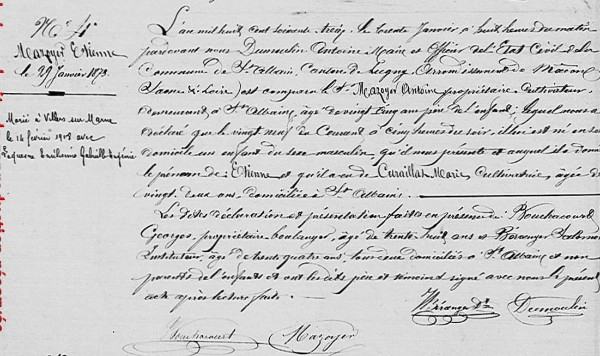 Mazoyer Etienne
le 29 Janvier 1873.
Marié à Villars sur
le 14 février 1908 avec
Gabrielle Eugénie
L'an mil huit cent soixante treize le trente Janvier à huit heures du matin
pardevant nous Dumoulin Antoine Maire et Officier de l'Etat Civil de la
Commune de St Albain, Canton de Lugny Arrondissement de Mâcon
Saône & Loire, est comparu le Sr Mazoyer Antoine propriétaire cultivateur,
demeurant à St Albain, âgé de vingt cinq ans père de l'enfant; lequel nous a
déclaré que le vingt neuf du Courant à cinq heures du soir, il lui est né en son
domicile un enfant du sexe masculin, qu'il nous présente et auquel il a donné
le prénom de: Etienne et qu'il a eu de Curaillat Marie Cultivatrice, âgée de
vingt deux ans, domiciliée à St Albain.
Les dites déclaration et présentation faites en présence de: Bouchacourt
Georges, propriétaire boulanger, âgé de trente huit ans et Béranger
Instituteur, âgé de trente quatre ans, tous deux domiciliés à St Albain et non
parents de l'enfant et ont les dits père et témoins signé avec nous le présent
acte après lecture faite.
Béranger Dumoulin
Bouchacourt Mazoyer